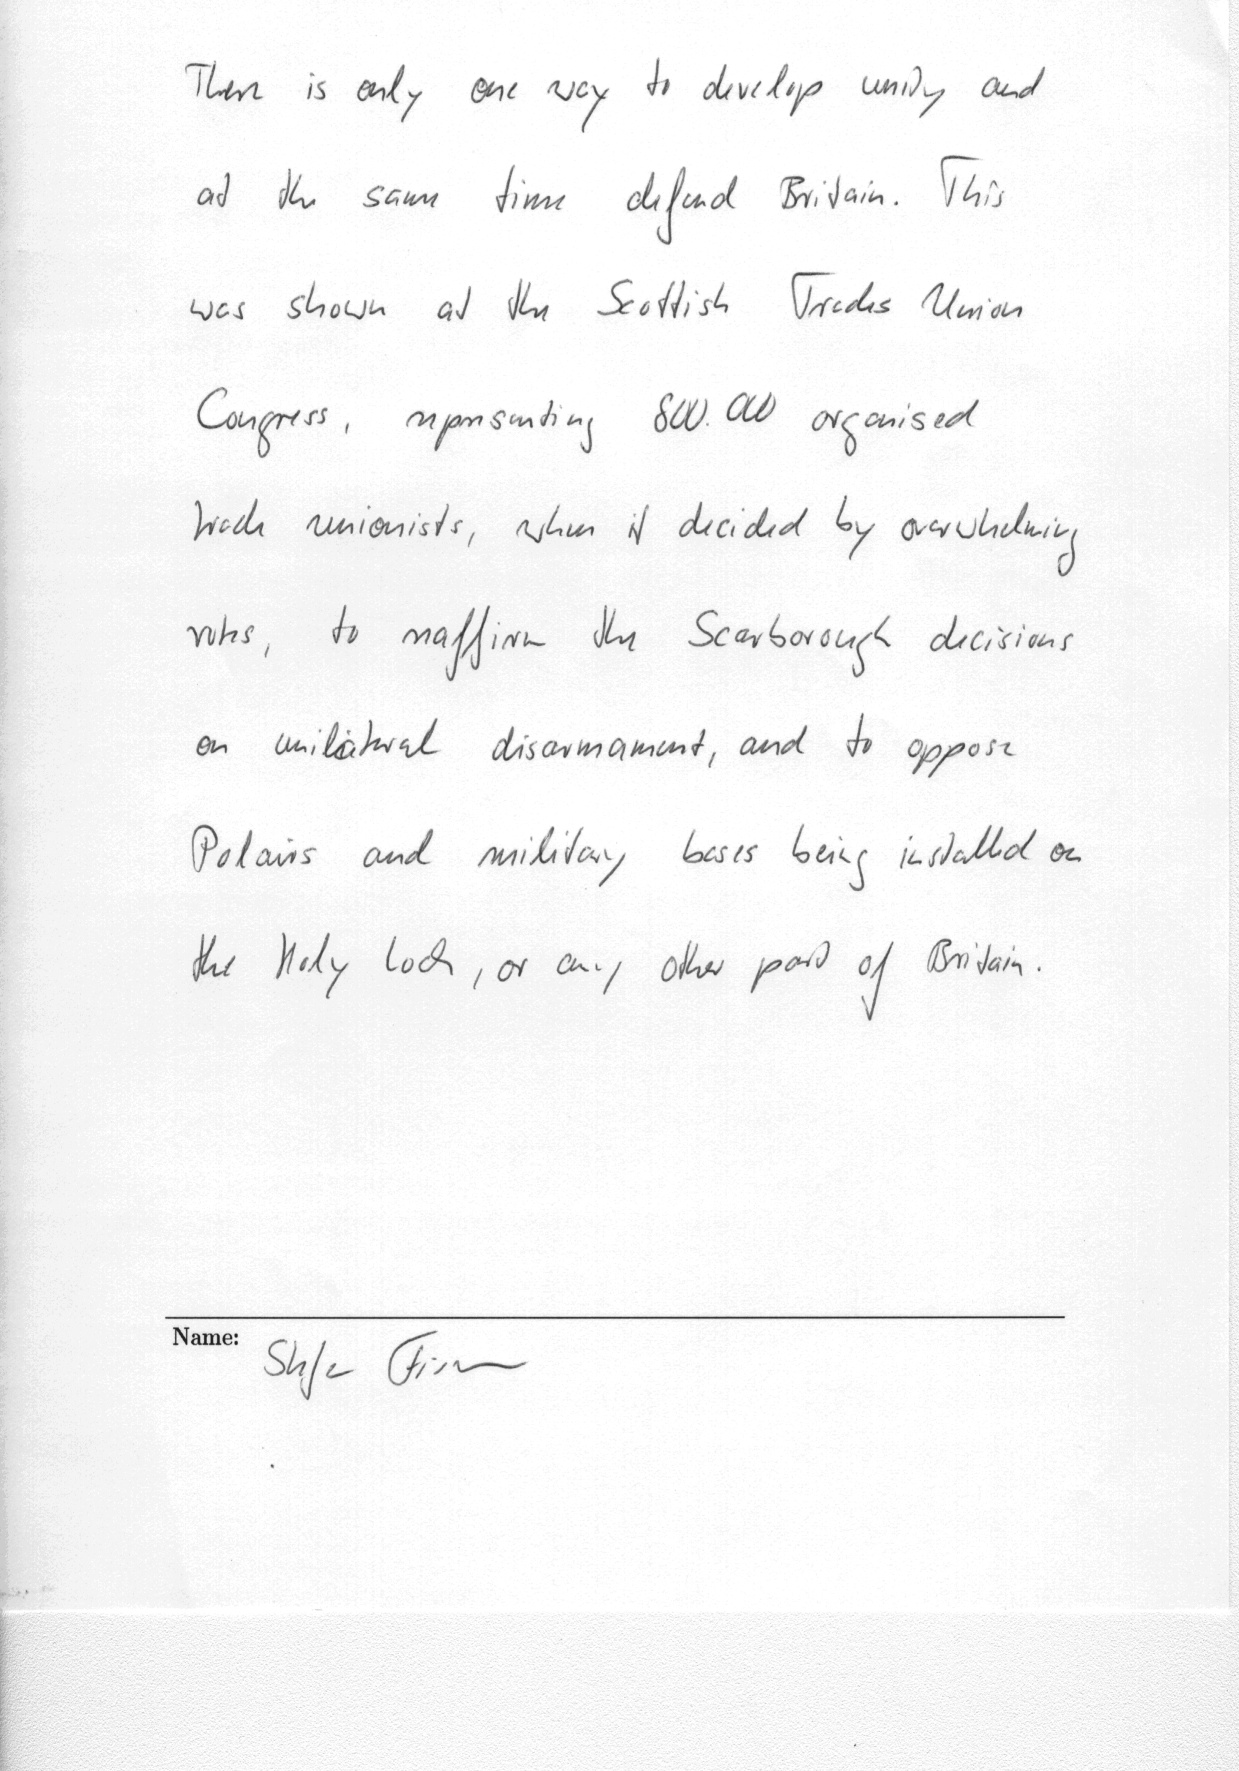 There is only one way to develop unity and
at the same time defend Britain. This
was shown at the Scottish Trades Union
Congress, representing 800.000 organised
trade unionists, when it decided by overwhelming
votes, to reaffirm the Scarborough decisions
on unilateral disarmament, and to oppose
Polairis and military bases being installed on
the Holy Loch, or any other part of Britain.
Name: